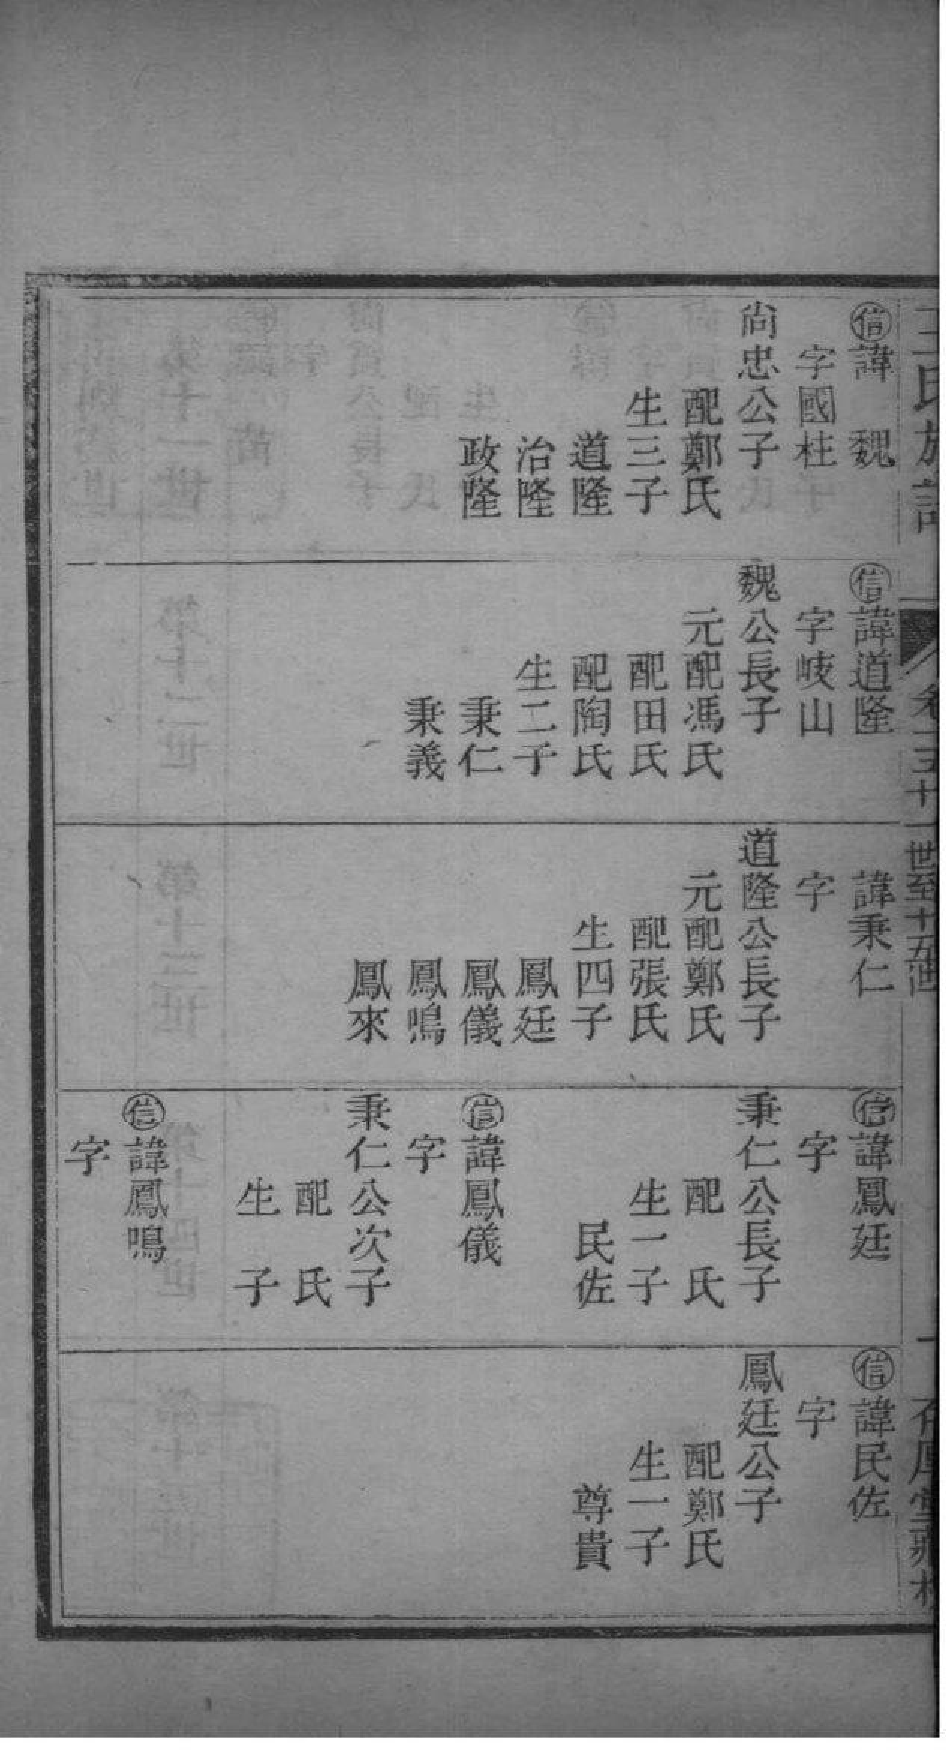 王氏族譜
卷
一
世至十五世
信諱魏
字國柱
尚忠公子
配鄭氏
生三子
道隆
治隆
政隆
信諱道隆
字岐山
魏公長子
元配馮氏
配田氏
配陶氏
生二子
秉仁
秉義
諱秉仁
字
道隆公長子
元配鄭氏
配張氏
生四子
鳳廷
鳳儀
鳳鳴
鳳來
信諱鳳廷
字
秉仁公長子
配 氏
生一子
民佐
信諱鳳儀
字
秉仁公次子
配 氏
生 子
信諱鳳鳴
字
信諱民佐
字
鳳廷公子
配鄭氏
生一子
尊貴